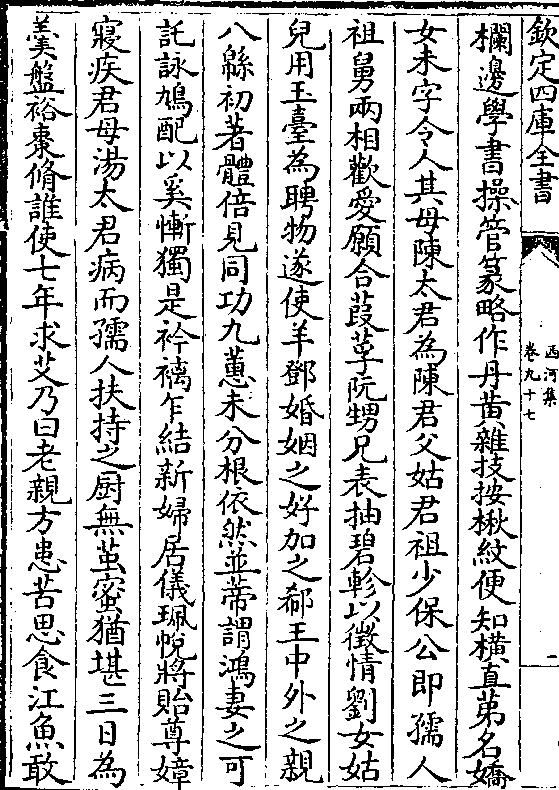 欽定四庫全書
西河集
卷九十七
欄邊學書操管篆略作丹黄雜技按楸紋便知横直弟名嬌
女未字令人其母陳太君為陳君父姑君祖少保公即孺人
祖舅兩相歡愛願合葭莩阮甥兄表抽碧軫以徵情劉女姑
兒用玉臺為聘物遂使羊鄧婚姻之好加之郗王中外之親
八緜初著體倍見同功九蕙未分根依然並蒂謂鴻妻之可
託詠鳩配以奚慚獨是衿褵乍結新婦居儀珮帨將貽尊嫜
寢疾君母湯太君病而孺人扶持之厨無茧蜜猶堪三日為
羮盤裕棗脩誰使七年求艾乃曰老親方患苦思食江魚敢